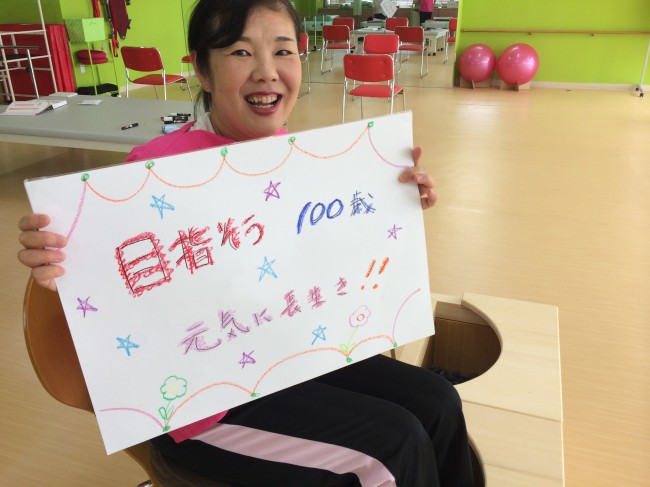 目指そう 100歳
元気に長生き!!